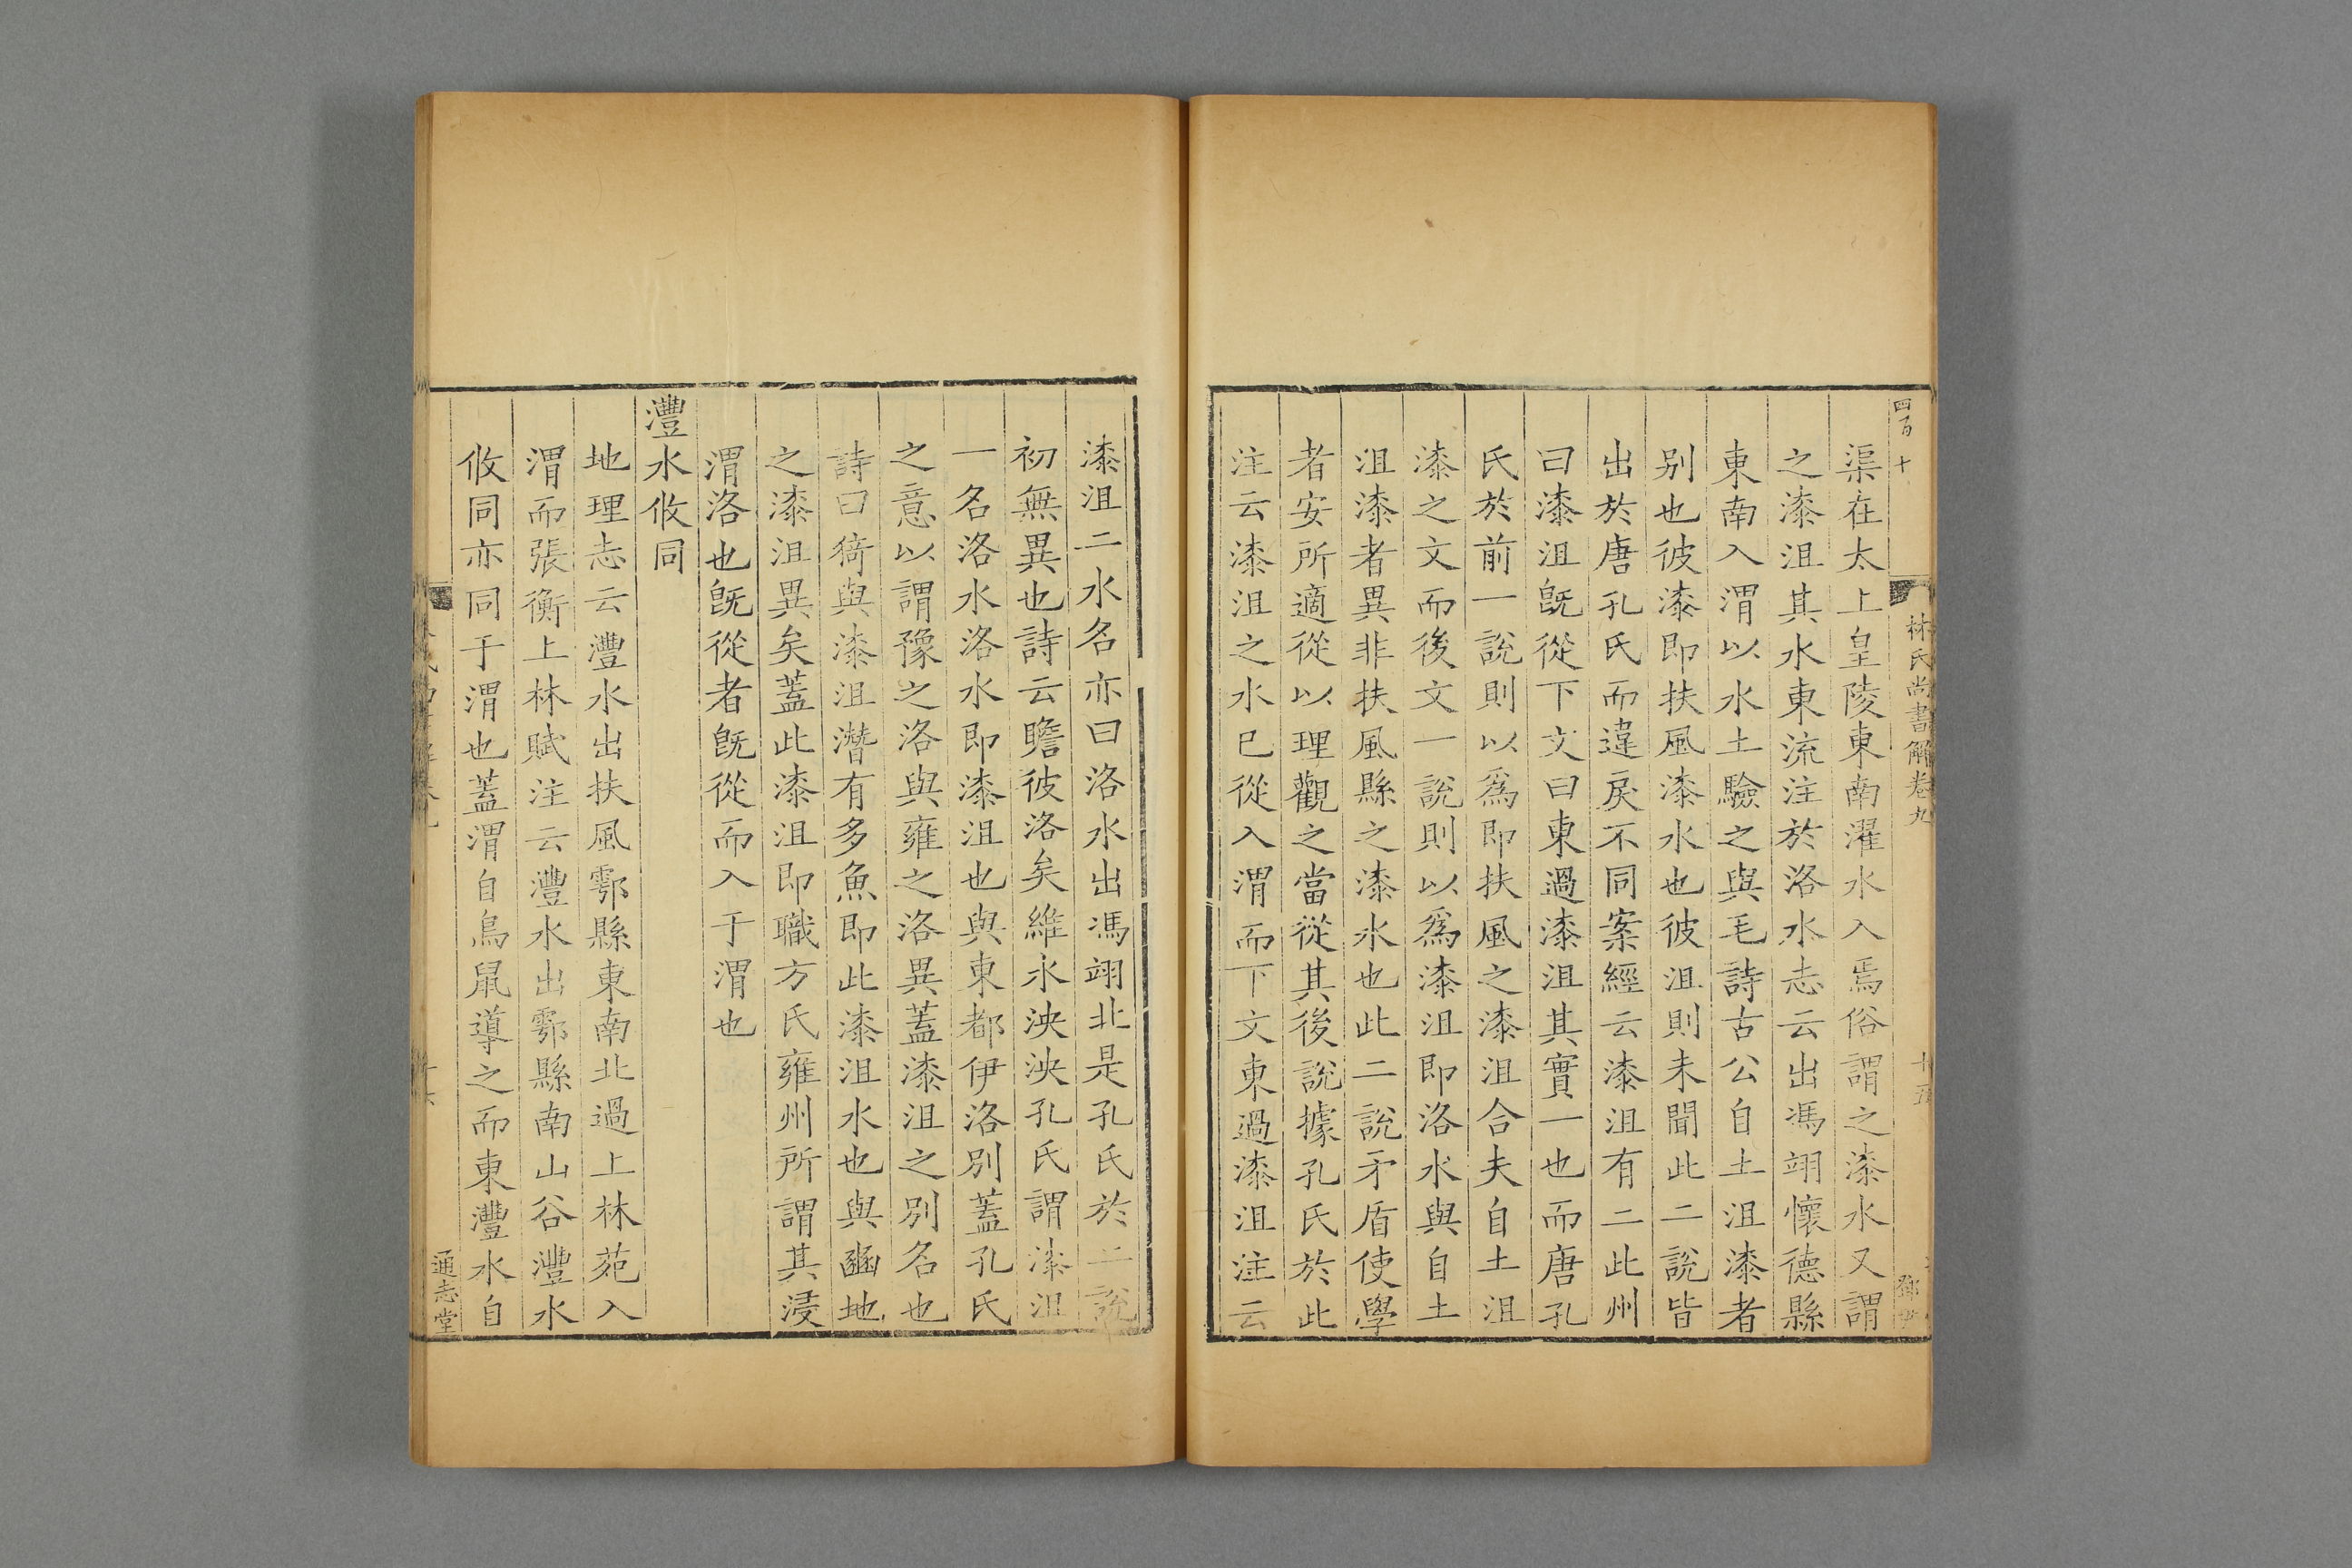 四百十
林氏尚書解卷九
十五
渠在太上皇陵東南濯水入焉俗謂之漆水又謂
之漆沮其水東流注於洛水志云出馮翊懷德縣
東南入渭以水土驗之與毛詩古公自土沮漆者
别也彼漆即扶風漆水也彼沮則未聞此二說皆
出於唐孔氏而違戾不同案經云漆沮有二此州
曰漆沮旣從下文曰東過漆沮其實一也而唐孔
氏於前一說則以爲即扶風之漆沮合夫自土沮
漆之文而後文一說則以爲漆沮即洛水與自土
沮漆者異非扶風縣之漆水也此二說矛盾使學
者安所適從以理觀之當從其後說據孔氏於此
注云漆沮之水已從入渭而下文東過漆沮注云
漆沮二水名亦曰洛水出馮翊北是孔氏於二說
初無異也詩云瞻彼洛矣維水泱泱孔氏謂漆沮
一名洛水洛水即漆沮也與東都伊洛別蓋孔氏
之意以謂豫之洛與雍之洛異蓋漆沮之別名也
詩曰猗與漆沮潛有多魚即此漆沮水也與豳地
之漆沮異矣蓋此漆沮即職方氏雍州所謂其浸
渭洛也旣從者旣從而入于渭也
灃水攸同
地理志云灃水出扶風鄠縣東南北過上林苑入
渭而張衡上林賦注云灃水出鄠縣南山谷灃水
攸同亦同于渭也蓋渭自鳥鼠導之而東灃水自
通志堂